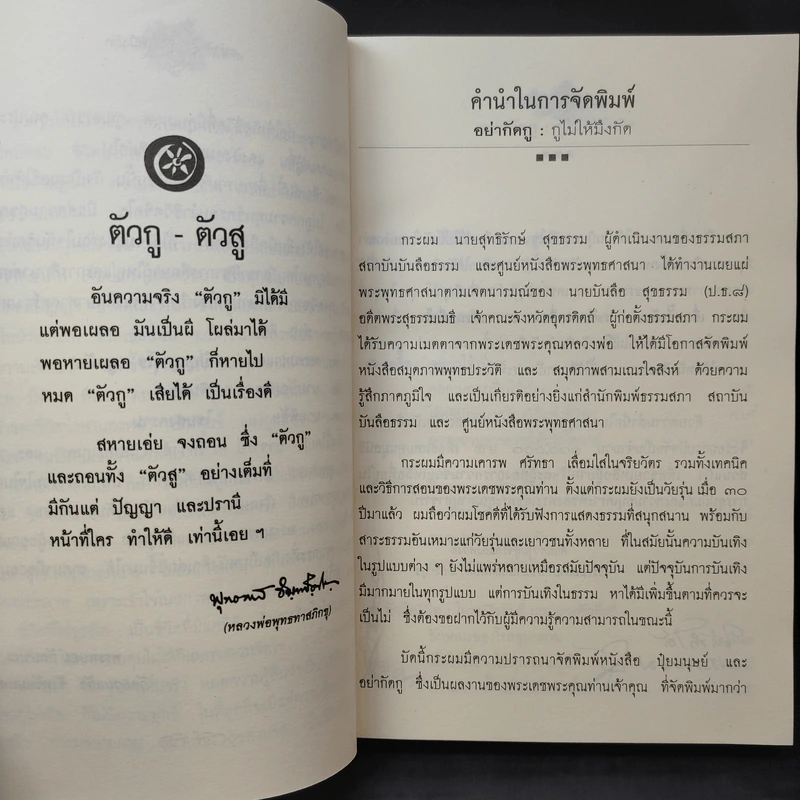 ตัวกู - ตัวสู
อันความจริง “ตัวกู” มิได้มี
แต่พอเผลอ มันเป็นผี โผล่มาได้
พอหายเผลอ “ตัวกู” ก็หายไป
หมด “ตัวกู” เสียได้ เป็นเรื่องดี
สหายเอ่ย จงถอน ซึ่ง “ตัวกู”
และถอนทั้ง “ตัวสู” อย่างเต็มที่
มีกันแต่ ปัญญา และปรานี
หน้าที่ใคร ทำให้ดี เท่านี้เอย ฯ
พุทธทาส อินทปัญโญ
(หลวงพ่อพุทธทาสภิกขุ)
คำนำในการจัดพิมพ์
อย่ากัดกู : กูไม่ให้มึงกัด
กระผม นายสุทธิรักษ์ สุขธรรม ผู้ดำเนินงานของธรรมสภา
สถาบันบันลือธรรม และศูนย์หนังสือพระพุทธศาสนา ได้ทำงานเผยแผ่
พระพุทธศาสนาตามเจตนารมณ์ของ นายบันลือ สุขธรรม (ป.ธ.๘)
อดีตพระสุธรรมเมธี เจ้าคณะจังหวัดอุตรดิตถ์ ผู้ก่อตั้งธรรมสภา กระผม
ได้รับความเมตตาจากพระเดชพระคุณหลวงพ่อ ให้ได้มีโอกาสจัดพิมพ์
หนังสือสมุดภาพพุทธประวัติ และ สมุดภาพสามเณรใจสิงห์ ด้วยความ
รู้สึกภาคภูมิใจ และเป็นเกียรติอย่างยิ่งแก่สำนักพิมพ์ธรรมสภา สถาบัน
บันลือธรรม และ ศูนย์หนังสือพระพุทธศาสนา
กระผมมีความเคารพ ศรัทธา เลื่อมใสในจริยวัตร รวมทั้งเทคนิค
และวิธีการสอนของพระเดชพระคุณท่าน ตั้งแต่กระผมยังเป็นวัยรุ่นเมื่อ ๓๐
ปีมาแล้ว ผมถือว่าผมโชคดีที่ได้รับฟังการแสดงธรรมที่สนุกสนาน พร้อมกับ
สาระธรรมอันเหมาะแก่วัยรุ่นและเยาวชนทั้งหลาย ที่ในสมัยนั้นความบันเทิง
ในรูปแบบต่าง ๆ ยังไม่แพร่หลายเหมือรสมัยปัจจุบัน แต่ปัจจุบันการบันเทิง
มีมากมายในทุกรูปแบบ แต่การบันเทิงในธรรม หาได้มีเพิ่มขึ้นตามที่ควรจะ
เป็นไม่ ซึ่งต้องขอฝากไว้กับผู้มีความรู้ความสามารถในขณะนี้
บัดนี้กระผมมีความปรารถนาจัดพิมพ์หนังสือ ปุ๋ยมนุษย์ และ
อย่ากัดกู ซึ่งเป็นผลงานของพระเดชพระคุณท่านเจ้าคุณ ที่จัดพิมพ์มากว่า